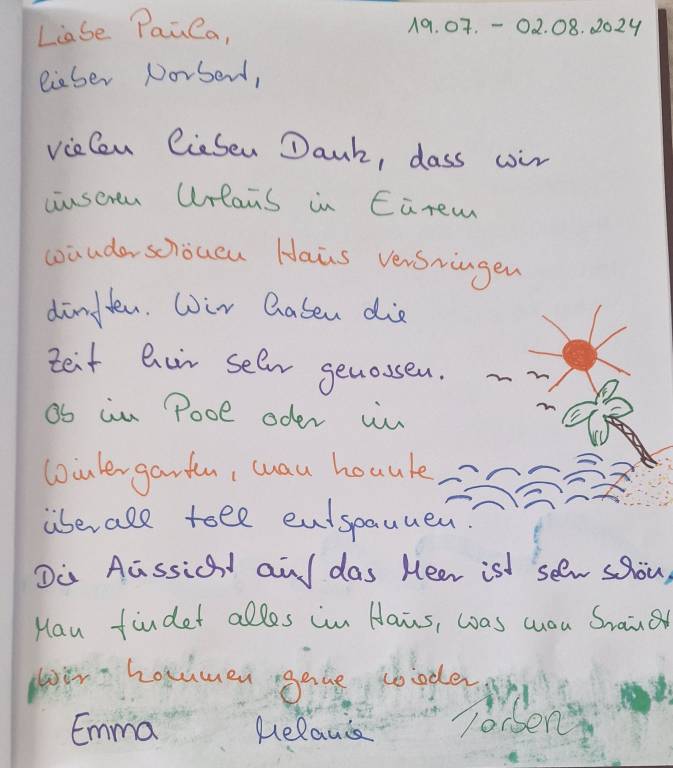 Liebe Paula, 19.07. - 02.08.2024
lieber Norbert,
vielen lieben Dank, dass wir
unseren Urlaub in Eurem
wunderschönen Haus verbringen
durften. Wir haben die
Zeit hier sehr genossen.
Ob im Pool oder im
Wintergarten, man konnte
überall toll entspannen.
Die Aussicht auf das Meer ist sehr schön.
Man findet alles im Haus, was man braucht
Wir kommen gerne wieder
Emma Melanie Torben